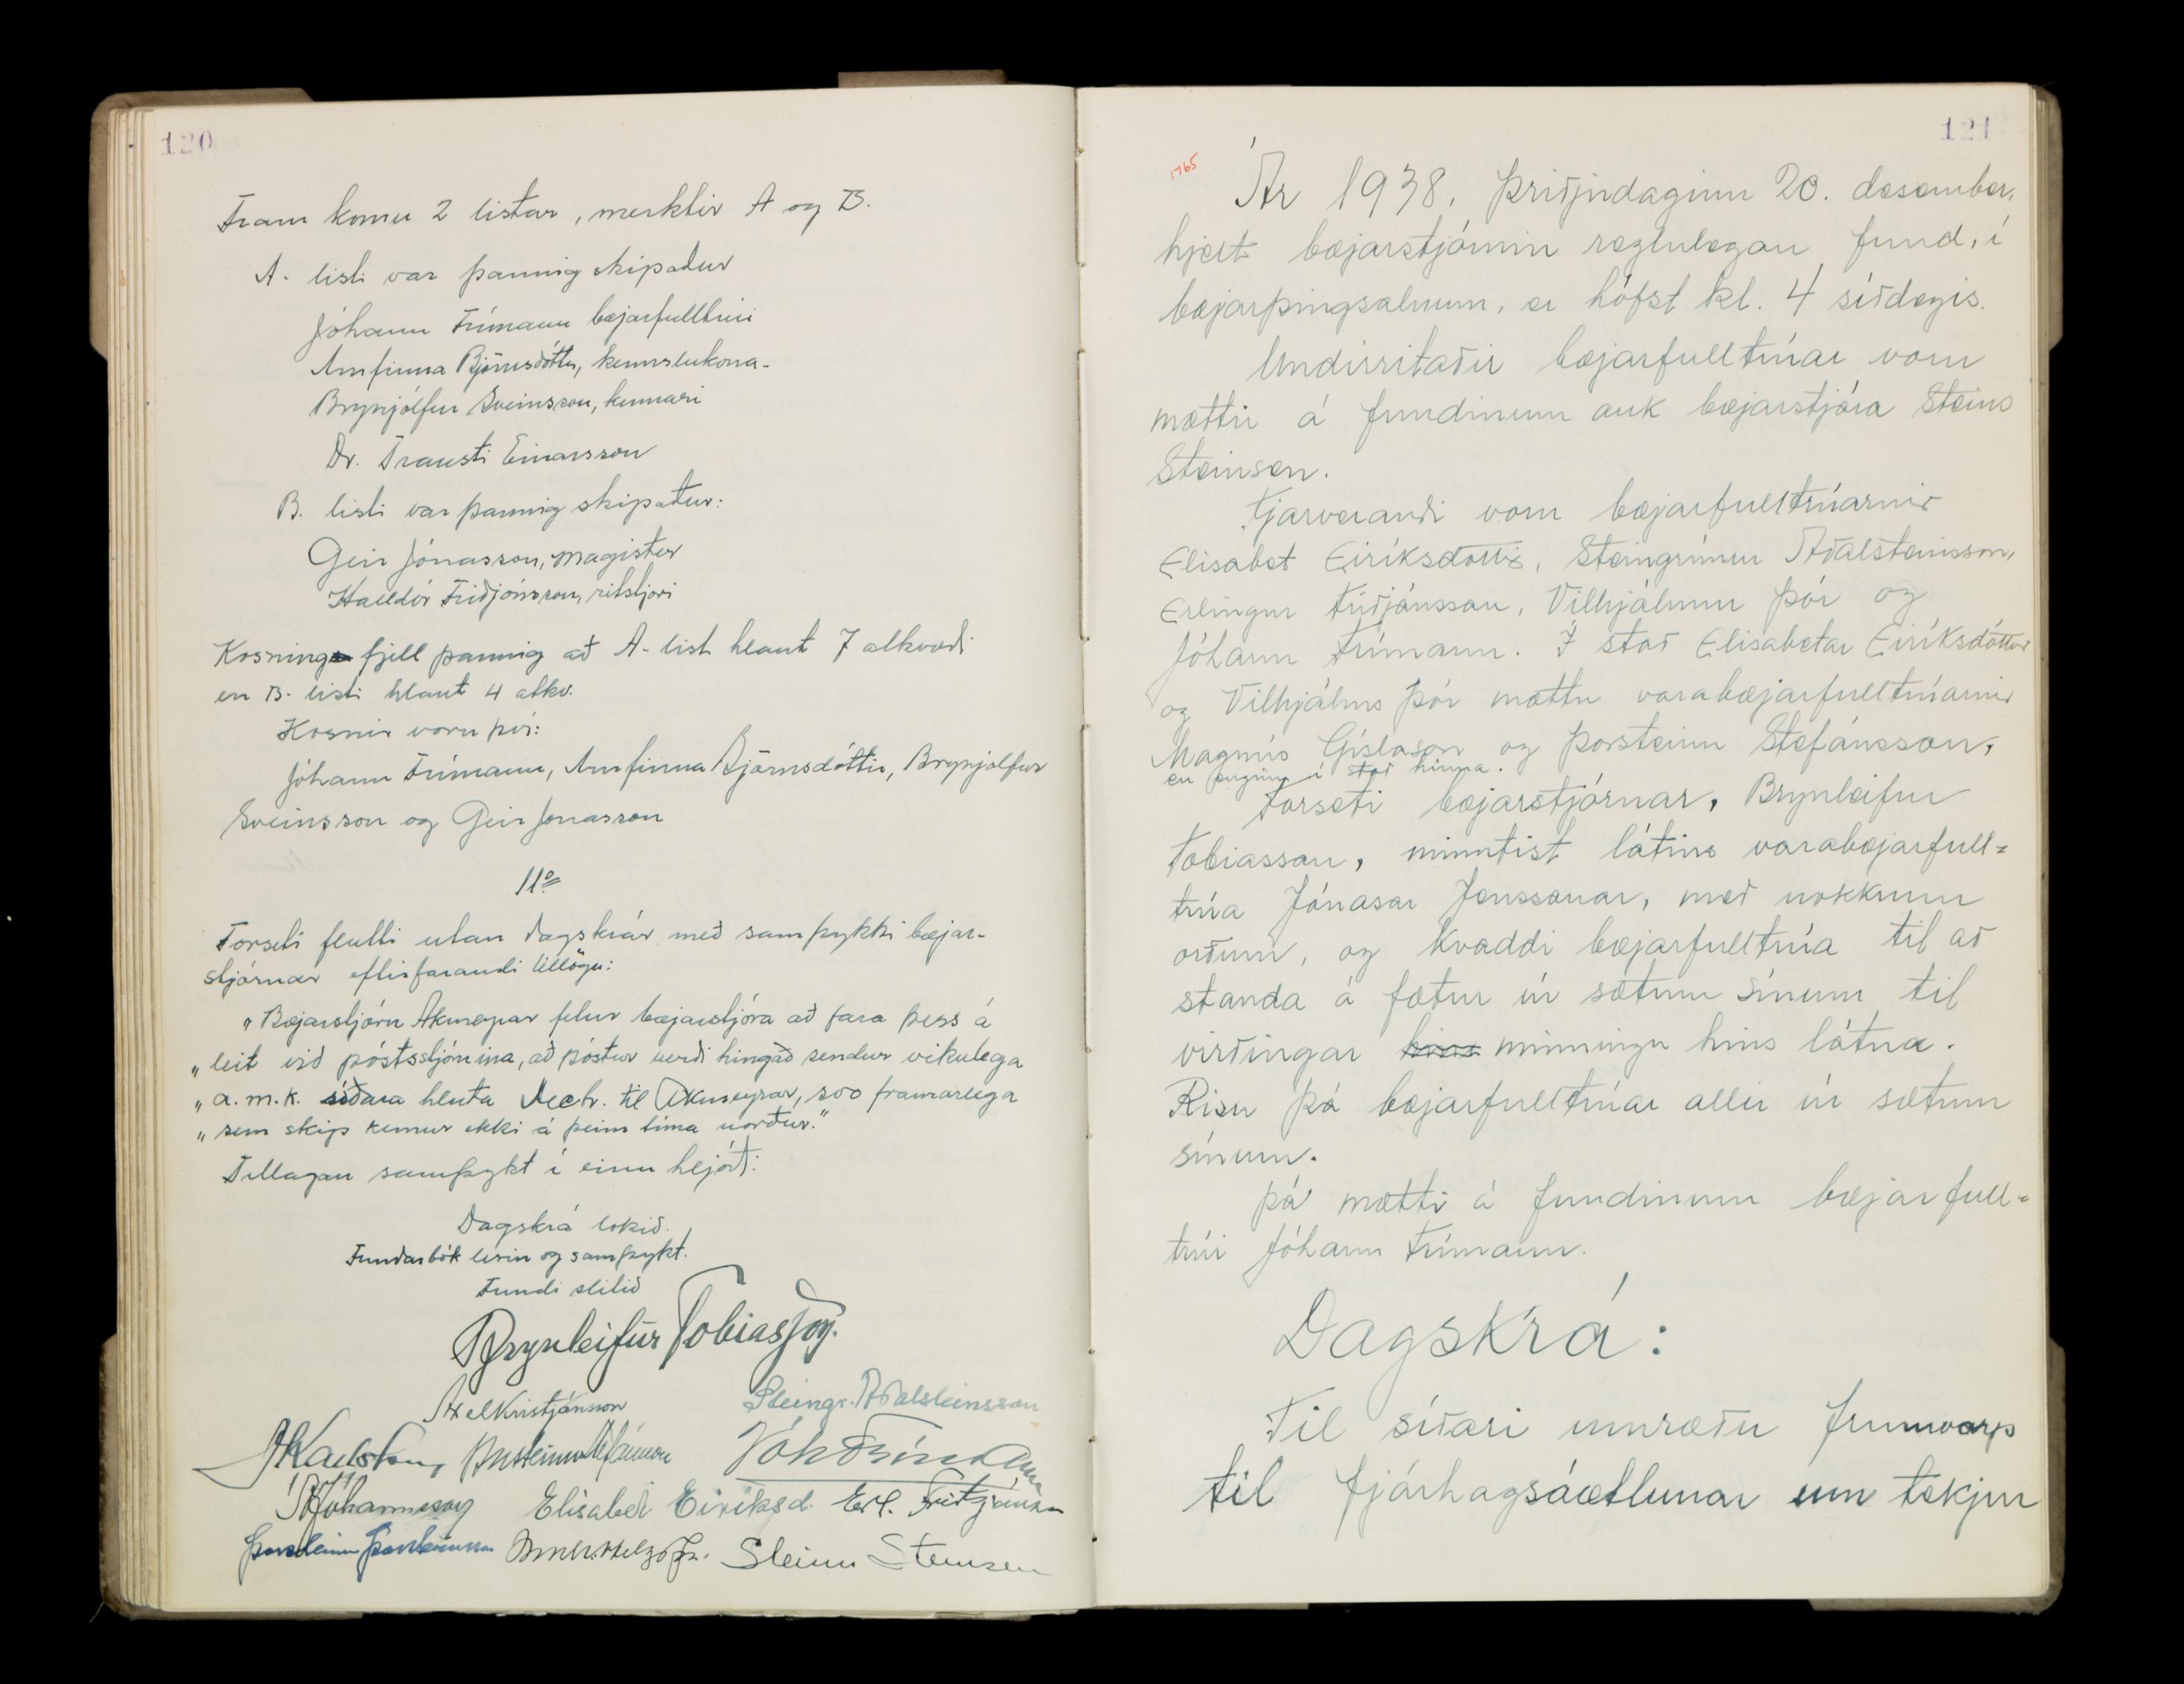 120
Fram komu 2 listar, merktir A og B.
A- listi var þannig skipaður
Jóhann Frímann bæjarfulltrúi
Arnfinna Björnsdóttir, kennslukona-
Brynjólfur Sveinsson, kennari
Dr. Trausti Einarsson
B. listi var þannig skipaður:
Geir Jónasson, magister
Halldór Friðjónsson, ritstjóri
Kosning fjell þannig að A- list hlaut 7 atkvæði
en B- listi hlaut 4 atkv.
Kosnir voru því:
Jóhann Frímann, Arnfinna Björnsdóttir, Brynjólfur
Sveinsson og Geir Jónasson
11º
Forseti flutti utan dagskrár með samþykki bæjar-
stjórnar eftirfarandi tillögu:
"Bæjarstjórn Akureyrar felur bæjarstjóra að fara þess á
"leit við póststjórnina, að póstur verði hingað sendur vikulega
"a.m.k. síðara hluta vetr. til Akureyrar, svo framarlega
"sem skip kemur ekki á þeim tíma norður."
Tillagan samþykt í einu hljóði:
Dagskrá lokið.
Fundarbók lesin og samþykt.
Fundi slitið
Brynleifur Tobiasson.
Axel Kristjánsson Steingr. Aðalsteinsson
Þorsteinn Stefánsson Jóh Frímann
Jóhannesson Elísabet Eiríksd. Erl. Friðjónsson
Þorsteinn Þorsteinsson Steinn Steinsen
121
1765
Ár 1938, þriðjudaginn 20. desember,
hjelt bæjarstjórnin reglulegan fund, í
bæjarþingsalnum, er hófst kl. 4 síðdegis.
Undirritaðir bæjarfulltrúar voru
mættir á fundinum auk bæjarstjóra Steins
Steinsen.
Fjarverandi voru bæjarfulltrúarnir
Elisabet Eiríksdóttir, Steingrímur Aðalsteinsson,
Erlingur Friðjónsson, Vilhjálmur Þór og
Jóhann Frímann. Í stað Elisabetar Eiríksdóttur
og Vilhjálms Þór mættu varabæjarfulltrúarnir
Magnús Gíslason og Þorsteinn Stefánsson,
en enginn í stað hinna.
Forseti bæjarstjórnar, Brynleifur
Tobiasson, minntist látins varabæjarfull=
trúa Jónasar Jenssonar, með nokkrum
orðum, og kvaddi bæjarfulltrúa til að
standa á fætur úr sætum sínum til
virðingar hins minningu hins látna.
Risu þá bæjarfulltrúar allir úr sætum
sínum.
Þá mætti á fundinum bæjarfull=
trúi Jóhann Frímann.
Dagskrá:
Til síðari umræðu frumvarp
til fjárhagsáætlunar um tekjur